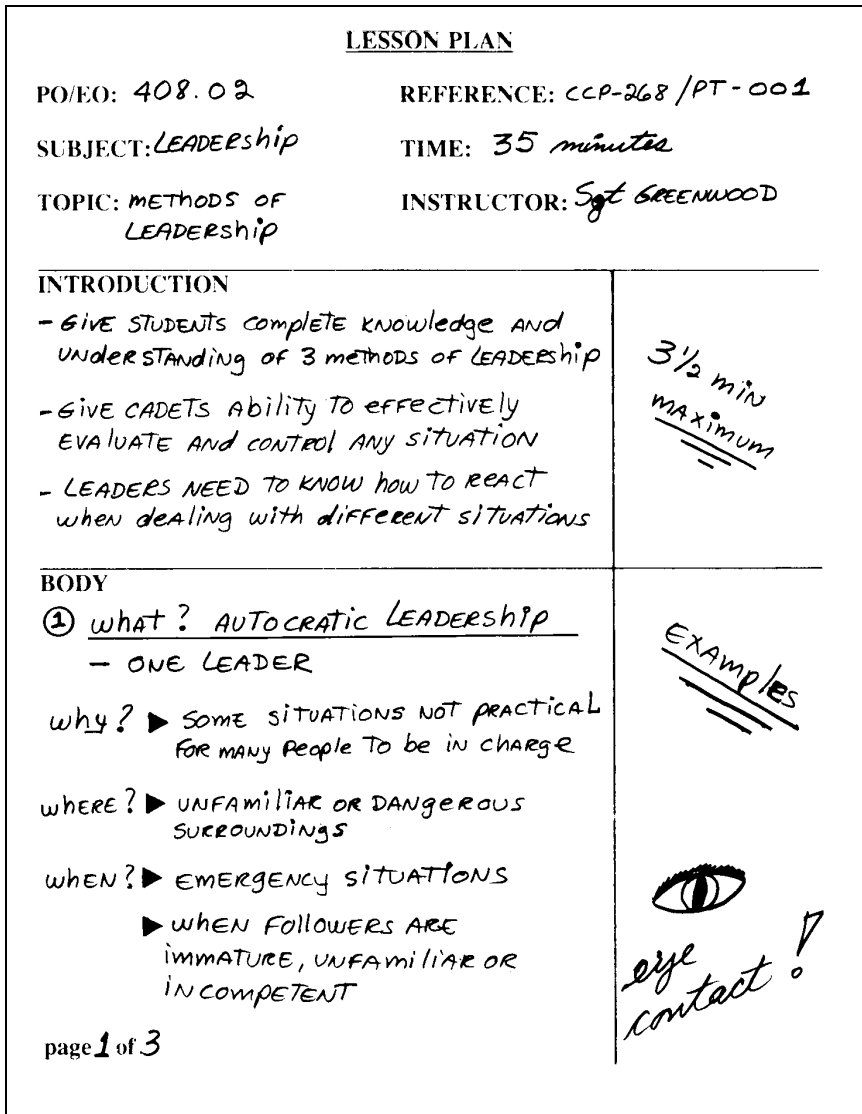 LESSON PLAN
PO/EO: 408.02
REFERENCE: CCP-268/PT-001
SUBJECT: LEADERship
TIME: 35 minutes
TOPIC: METHODS OF
LEADERship
INSTRUCTOR: Sgt GREENWOOD
INTRODUCTION
- GIVE STUDENTS complete knowledge AND
UNderSTANding of 3 methods of LEADERship
3 1/2 min
MAXimum
- GIVE CADETS Ability To effectively
EVAluATE ANd coNTRol ANY siTuATioN
- LEADERS NEED TO KNOW how To REACT
wheN deAliNg with diffEREnt siTuATioNs
BODY
① whAT? AUTOCRATic LEADERship
- ONE LEADER
EXAMplEs
why? ▶ SOME SITUATIONS NOT PRACTICAL
FOR MANY PEOPLE TO be iN chARgE
whERE? ▶ UNFAMiliAR OR DANgEROUS
SURROUNDiNgs
whEN? ▶ EMERgENCY siTUATIONS
▶ whEN FOllOWERS ARE
iMMATURE, UNFAMiliAR OR
iNCOMPETENT
eye
contact!
page 1 of 3